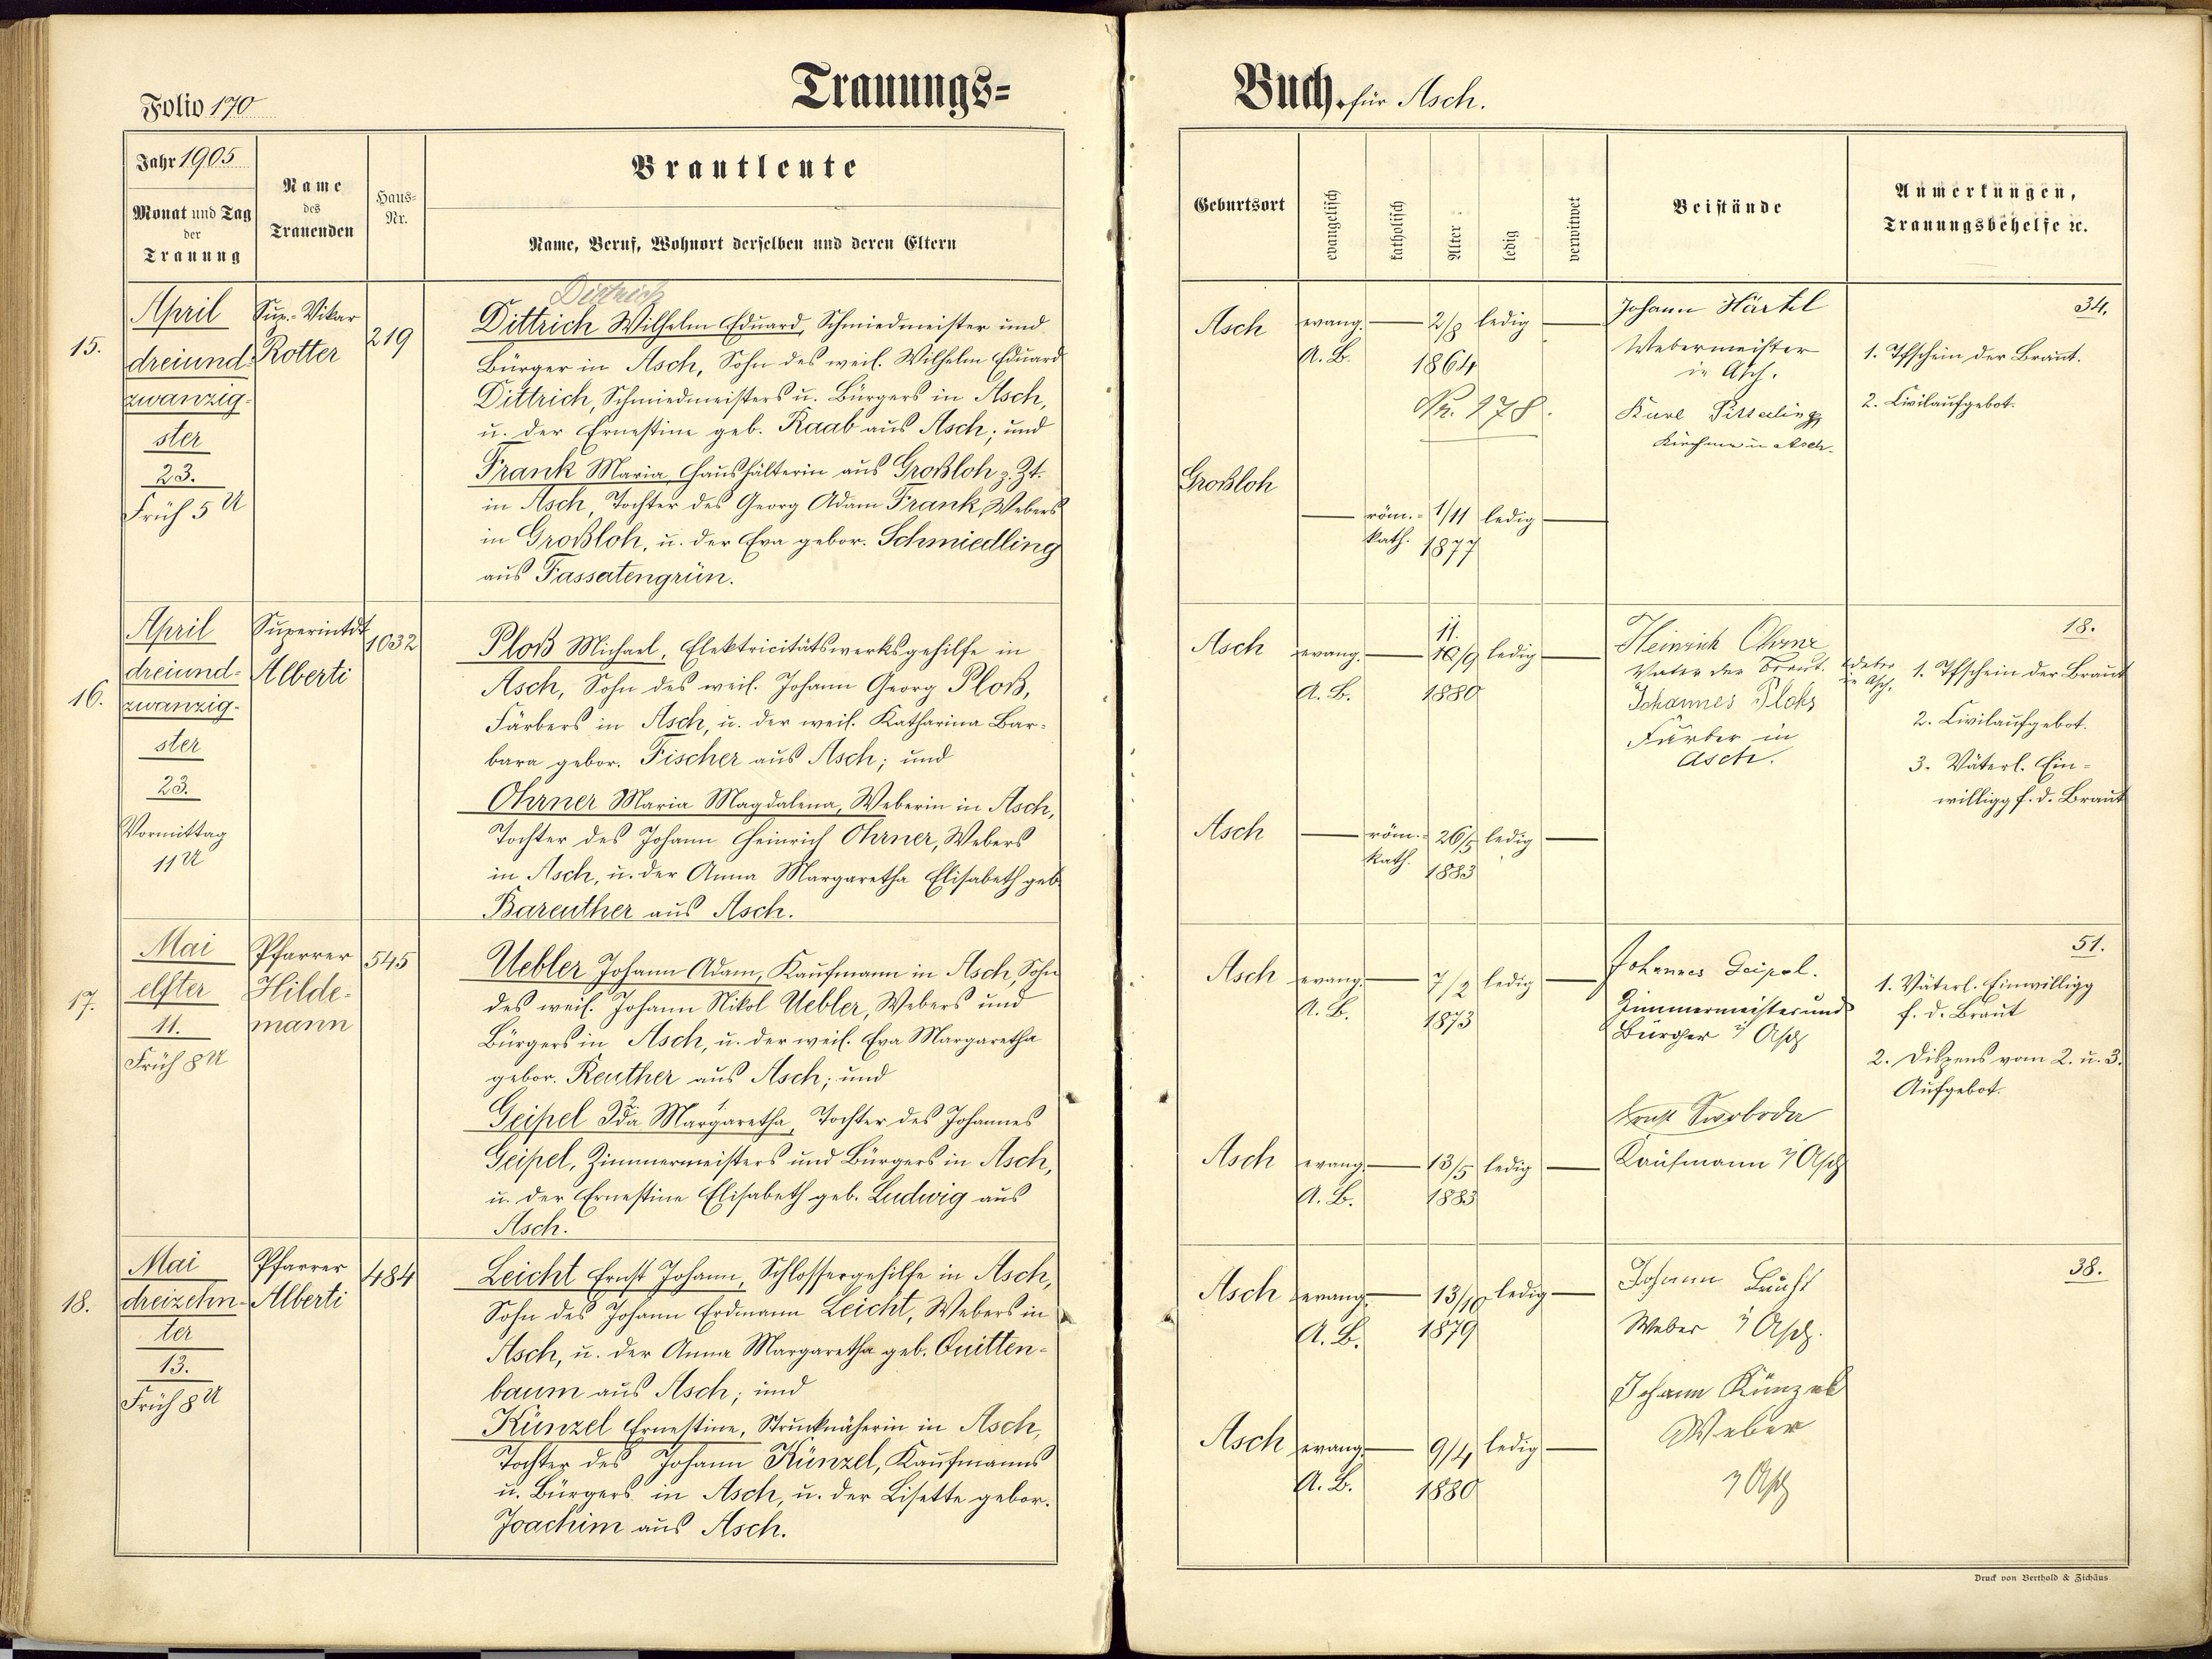 Folio 170
Trauungs-
Jahr 1905
Monat und Tag
der
Trauung
Name
des
Trauenden
Haus-
Nr.
Brautleute
Name, Beruf, Wohnort derselben und deren Eltern
15.
April
dreiund-
zwanzig-
ster
23.
Früh 5 U
Sup.-Vikar
Rotter
219
Dittrich
Dittrich Wilhelm Eduard, Schmiedmeister und
Bürger in Asch, Sohn des weil. Wilhelm Eduard
Dittrich, Schmiedmeisters u. Bürgers in Asch,
u. der Ernestine geb. Raab aus Asch; und
Frank Maria, Haushälterin aus Großloh z. Zt.
in Asch, Tochter des Georg Adam Frank, Webers
in Großloh, u. der Eva gebor. Schmiedling
aus Fassatengrün.
16.
April
dreiund-
zwanzig-
ster
23.
Vormittag
11 U
Superintdt
Alberti
1032
Ploß Michael, Elektricitätswerksgehilfe in
Asch, Sohn des weil. Johann Georg Ploß,
Färbers in Asch, u. der weil. Katharina Bar-
bara gebor. Fischer aus Asch; und
Ohrner Maria Magdalena, Weberin in Asch,
Tochter des Johann Heinrich Ohrner, Webers
in Asch, u. der Anna Margaretha Elisabeth geb.
Bareuther aus Asch.
17.
Mai
elfter
11.
Früh 8 U
Pfarrer
Hilde-
mann
545
Uebler Johann Adam, Kaufmann in Asch, Sohn
des weil. Johann Nikol Uebler, Webers und
Bürgers in Asch, u. der weil. Eva Margaretha
gebor. Reuther aus Asch; und
2. 1.
Geipel Ida Margaretha, Tochter des Johannes
Geipel, Zimmermeisters und Bürgers in Asch,
u. der Ernestine Elisabeth geb. Ludwig aus
Asch.
18.
Mai
dreizehn-
ter
13.
Früh 8 U
Pfarrer
Alberti
484
Leicht Ernst Johann, Schlossergehilfe in Asch,
Sohn des Johann Erdmann Leicht, Webers in
Asch, u. der Anna Margaretha geb. Quitten-
baum aus Asch; und
Künzel Ernestine, Strucknäherin in Asch,
Tochter des Johann Künzel, Kaufmanns
u. Bürgers in Asch, u. der Lisette gebor.
Joachim aus Asch.
Buch, für Asch.
Geburtsort
evangelisch
katholisch
Alter
ledig
verwitwet
Beistände
Anmerkungen,
Trauungsbehelfe ec.
Asch
evang.
A. B.
2/8
1864
ledig
Nr. 178.
Johann Härtel
Webermeister
in Asch.
Karl
in Asch.
34.
1. Tfschein der Braut.
2. Civilaufgebot.
Großloh
röm.-
kath.
1/11
1877
ledig
Asch
evang.
A. B.
11.
10/9
1880
ledig
Heinrich Ohrner
Vater der Braut. Weber
in Asch.
Johannes Ploß
Färber in
Asch.
18.
1. Tfschein der Braut
2. Civilaufgebot.
3. Väterl. Ein-
willigg f. d. Braut
Asch
röm.-
kath.
26/5
1883
ledig
Asch
evang.
A. B.
7/2
1873
ledig
Johannes Geipel.
Zimmermeister und
Bürger in Asch
51.
1. Väterl. Einwilligg
f. d. Braut
2. Dispens vom 2. u. 3.
Aufgebot.
Ernst Swoboda
Kaufmann in Asch
Asch
evang.
A. B.
13/5
1883
ledig
Asch
evang.
A. B.
13/10
1879
ledig
Johann Leicht
Weber in Asch.
38.
Johann Künzel
Weber
in Asch
Asch
evang.
A. B.
9/4
1880
ledig
Druck von Berthold & Zichäus